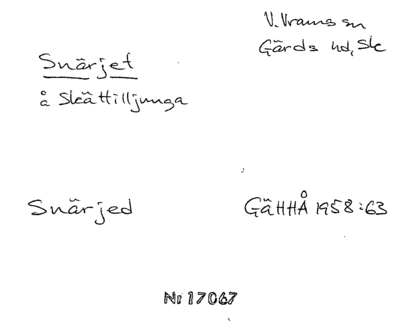 V. Vrams sn
Gärds hd, Sk
Snärjet
å Skättilljunga
Snärjed
GäHHÅ 1958:63
Nr 17067